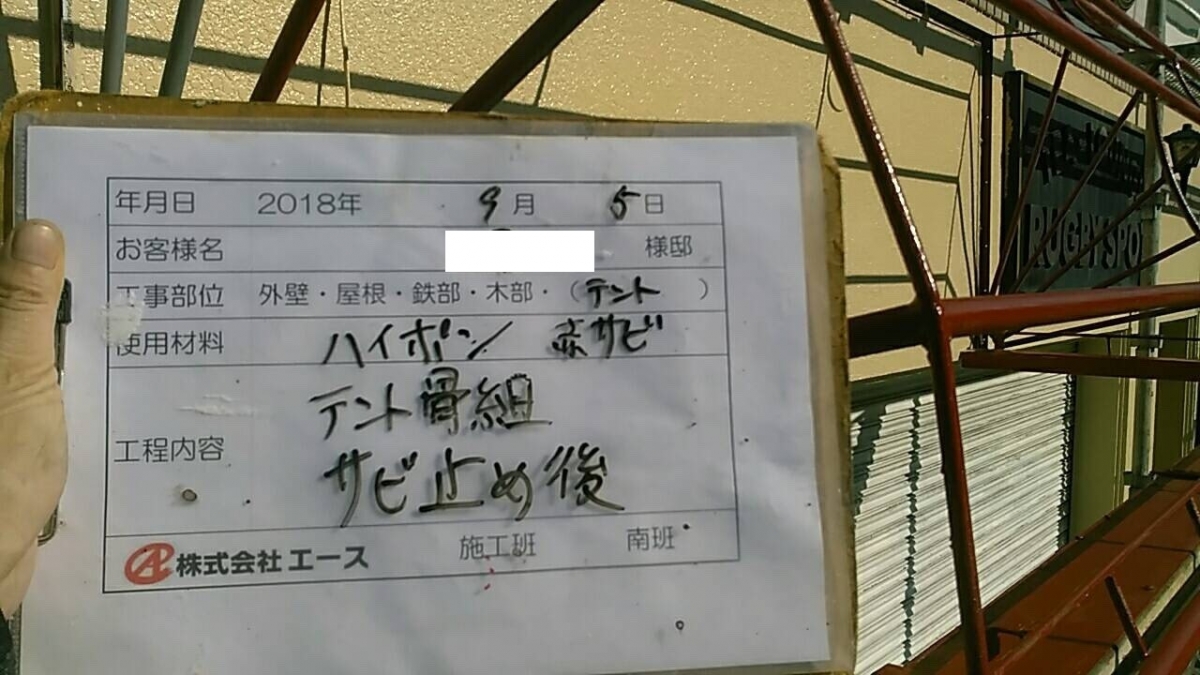 年月日 2018年 9月 5日
お客様名 様邸
工事部位 外壁・屋根・鉄部・木部・（テント ）
使用材料 ハイポン 赤サビ
工程内容 テント骨組
サビ止め後
株式会社 エース 施工班 南班
RUGBY SPOT